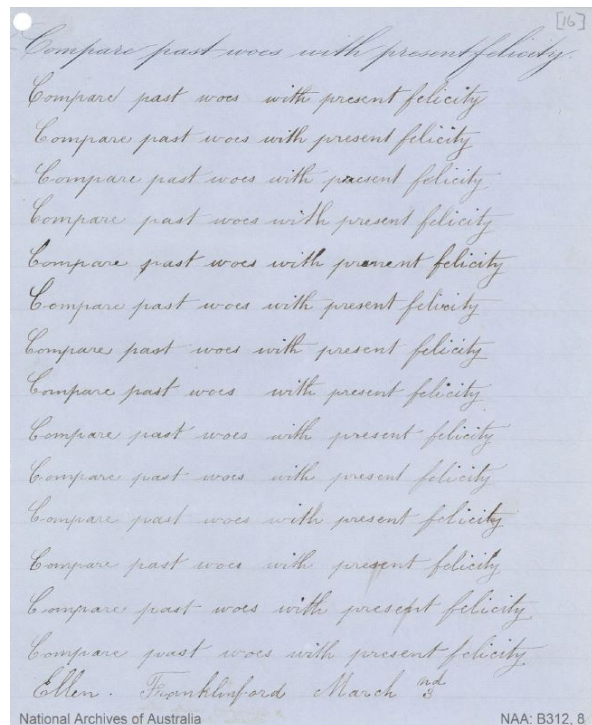 [16]
Compare past woes with present felicity.
Compare past woes with present felicity
Compare past woes with present felicity
Compare past woes with present felicity
Compare past woes with present felicity
Compare past woes with prenent felicity
Compare past woes with present felicity
Compare past woes with present felicity
Compare past woes with present felicity
Compare past woes with present felicity
Compare past woes with present felicity
Compare past woes with present felicity
Compare past woes with present felicity
Compare past woes with present felicity
Compare past woes with present felicity
Ellen. Franklinford March 3nd
National Archives of Australia NAA: B312, 8